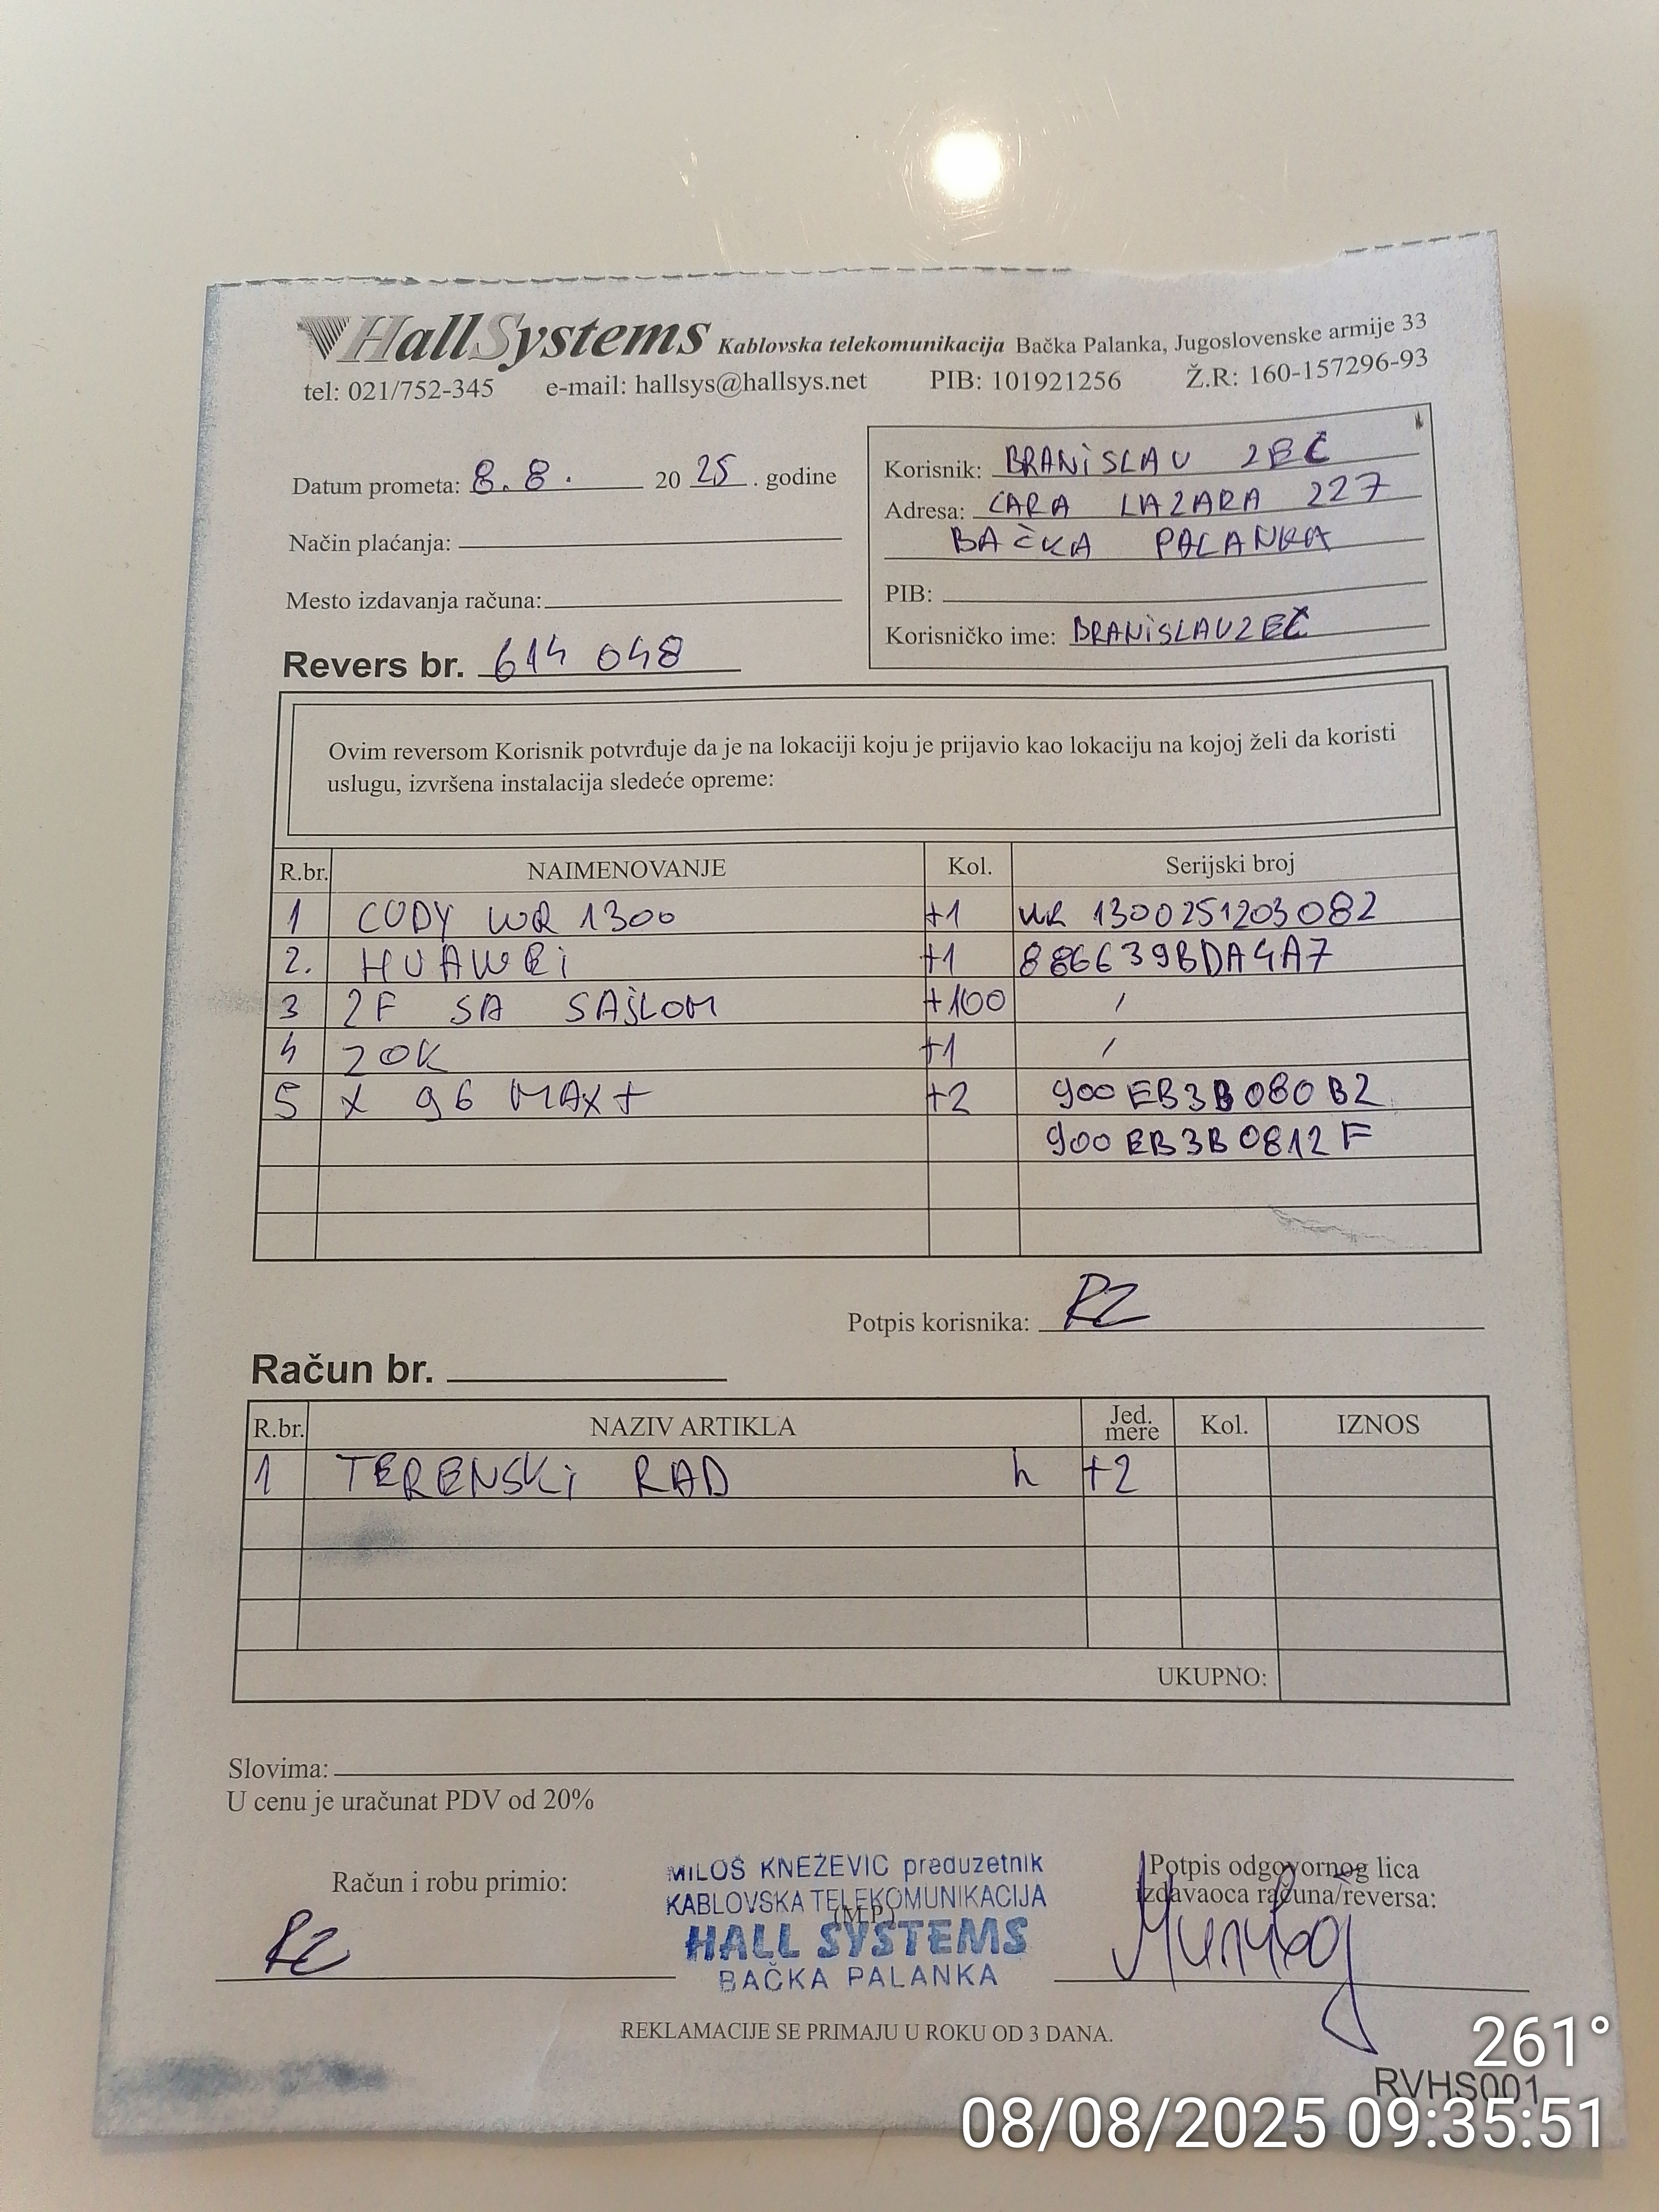 HallSystems Kablovska telekomunikacija Bačka Palanka, Jugoslovenske armije 33
tel: 021/752-345 e-mail: hallsys@hallsys.net PIB: 101921256 Ž.R: 160-157296-93
Datum prometa: 8.8. 20 25 . godine
Način plaćanja:
Mesto izdavanja računa:
Revers br. 614 048
Korisnik: BRANiSLAV ZEČ
Adresa: CARA LAZARA 227
BAČKA PALANKA
PIB:
Korisničko ime: BRANiSLAVZEČ
Ovim reversom Korisnik potvrđuje da je na lokaciji koju je prijavio kao lokaciju na kojoj želi da koristi
uslugu, izvršena instalacija sledeće opreme:
R.br. NAIMENOVANJE Kol. Serijski broj
1 CUDY WR 1300 +1 WR 1300251203082
2. HUAWEi +1 886639BDA4A7
3 2F SA SAJLOM +100 /
4 ZOK +1 /
5 X 96 MAX+ +2 900EB3B080B2
900EB3B0812F
Potpis korisnika: RZ
Račun br.
R.br. NAZIV ARTIKLA Jed. mere Kol. IZNOS
1 TERENSKi RAD h +2
UKUPNO:
Slovima:
U cenu je uračunat PDV od 20%
Račun i robu primio:
RZ
MILOŠ KNEŽEVIĆ preduzetnik
KABLOVSKA TELEKOMUNIKACIJA
(M.P.)
HALL SYSTEMS
BAČKA PALANKA
Potpis odgovornog lica
izdavaoca računa/reversa:
REKLAMACIJE SE PRIMAJU U ROKU OD 3 DANA.
RVHS001
261°
08/08/2025 09:35:51